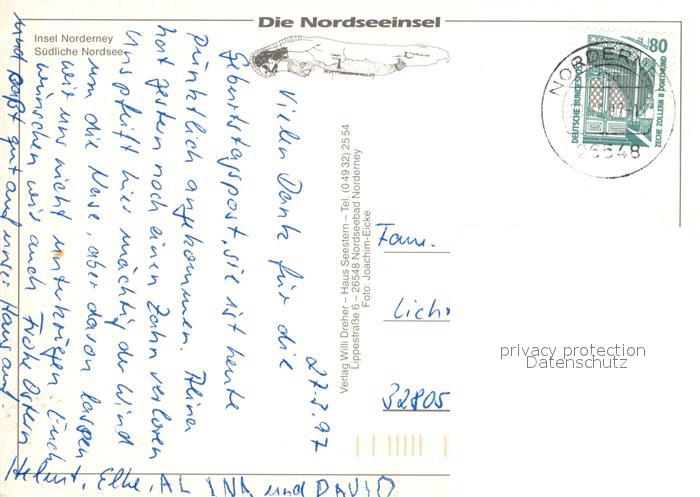 Die Nordseeinsel
Insel Norderney
Südliche Nordsee
27.3.97
Vielen Dank für die
Geburtstagspost, sie ist heute
pünktlich angekommen. Alina
hat gestern noch einen Zahn verloren
Uns pfeift hier mächtig der Wind
um die Nase, aber davon lassen
wir uns nicht unterkriegen. Euch
wünschen wir auch Frohe Ostern
und paßt gut auf unser Haus auf!
Helmut, Elke, ALINA und DAVID
Verlag Willi Dreher – Haus Seestern – Tel. (0 49 32) 25 54
Lippestraße 6 – 26548 Nordseebad Norderney
Foto: Joachim-Eicke
NORDERN
26548
80
DEUTSCHE BUNDESPOST
ZECHE ZOLLERN II DORTMUND
Fam.
Licht
32805
privacy protection
Datenschutz